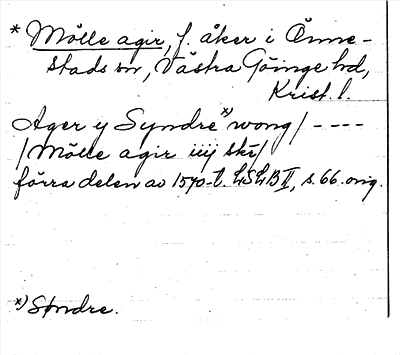 * Mölle agir, f. åker i Önne-
stads sn, Västra Göinge hd,
Krist. l.
Ager y Syndre *) wong/ ----
/Mölle agir iiij skr/
förra delen av 1570-t. LSLB II, s. 66. orig.
*) Søndre.